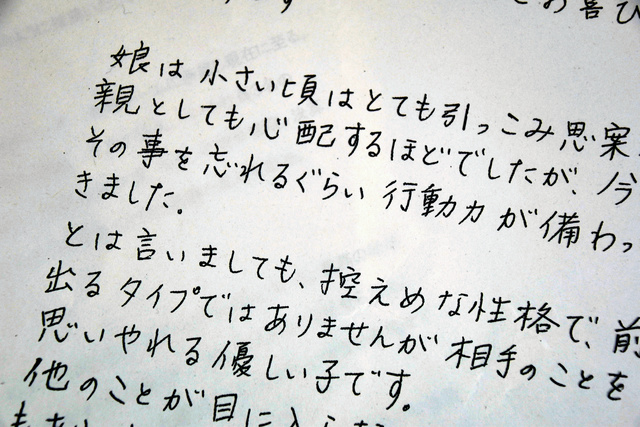 お喜び
娘は小さい頃はとても引っこみ思案
親としても心配するほどでしたが、今
その事を忘れるぐらい行動力が備わっ
きました。
とは言いましても、控えめな性格で、前
出るタイプではありませんが相手のことを
思いやれる優しい子です。
他のことが目に入らな